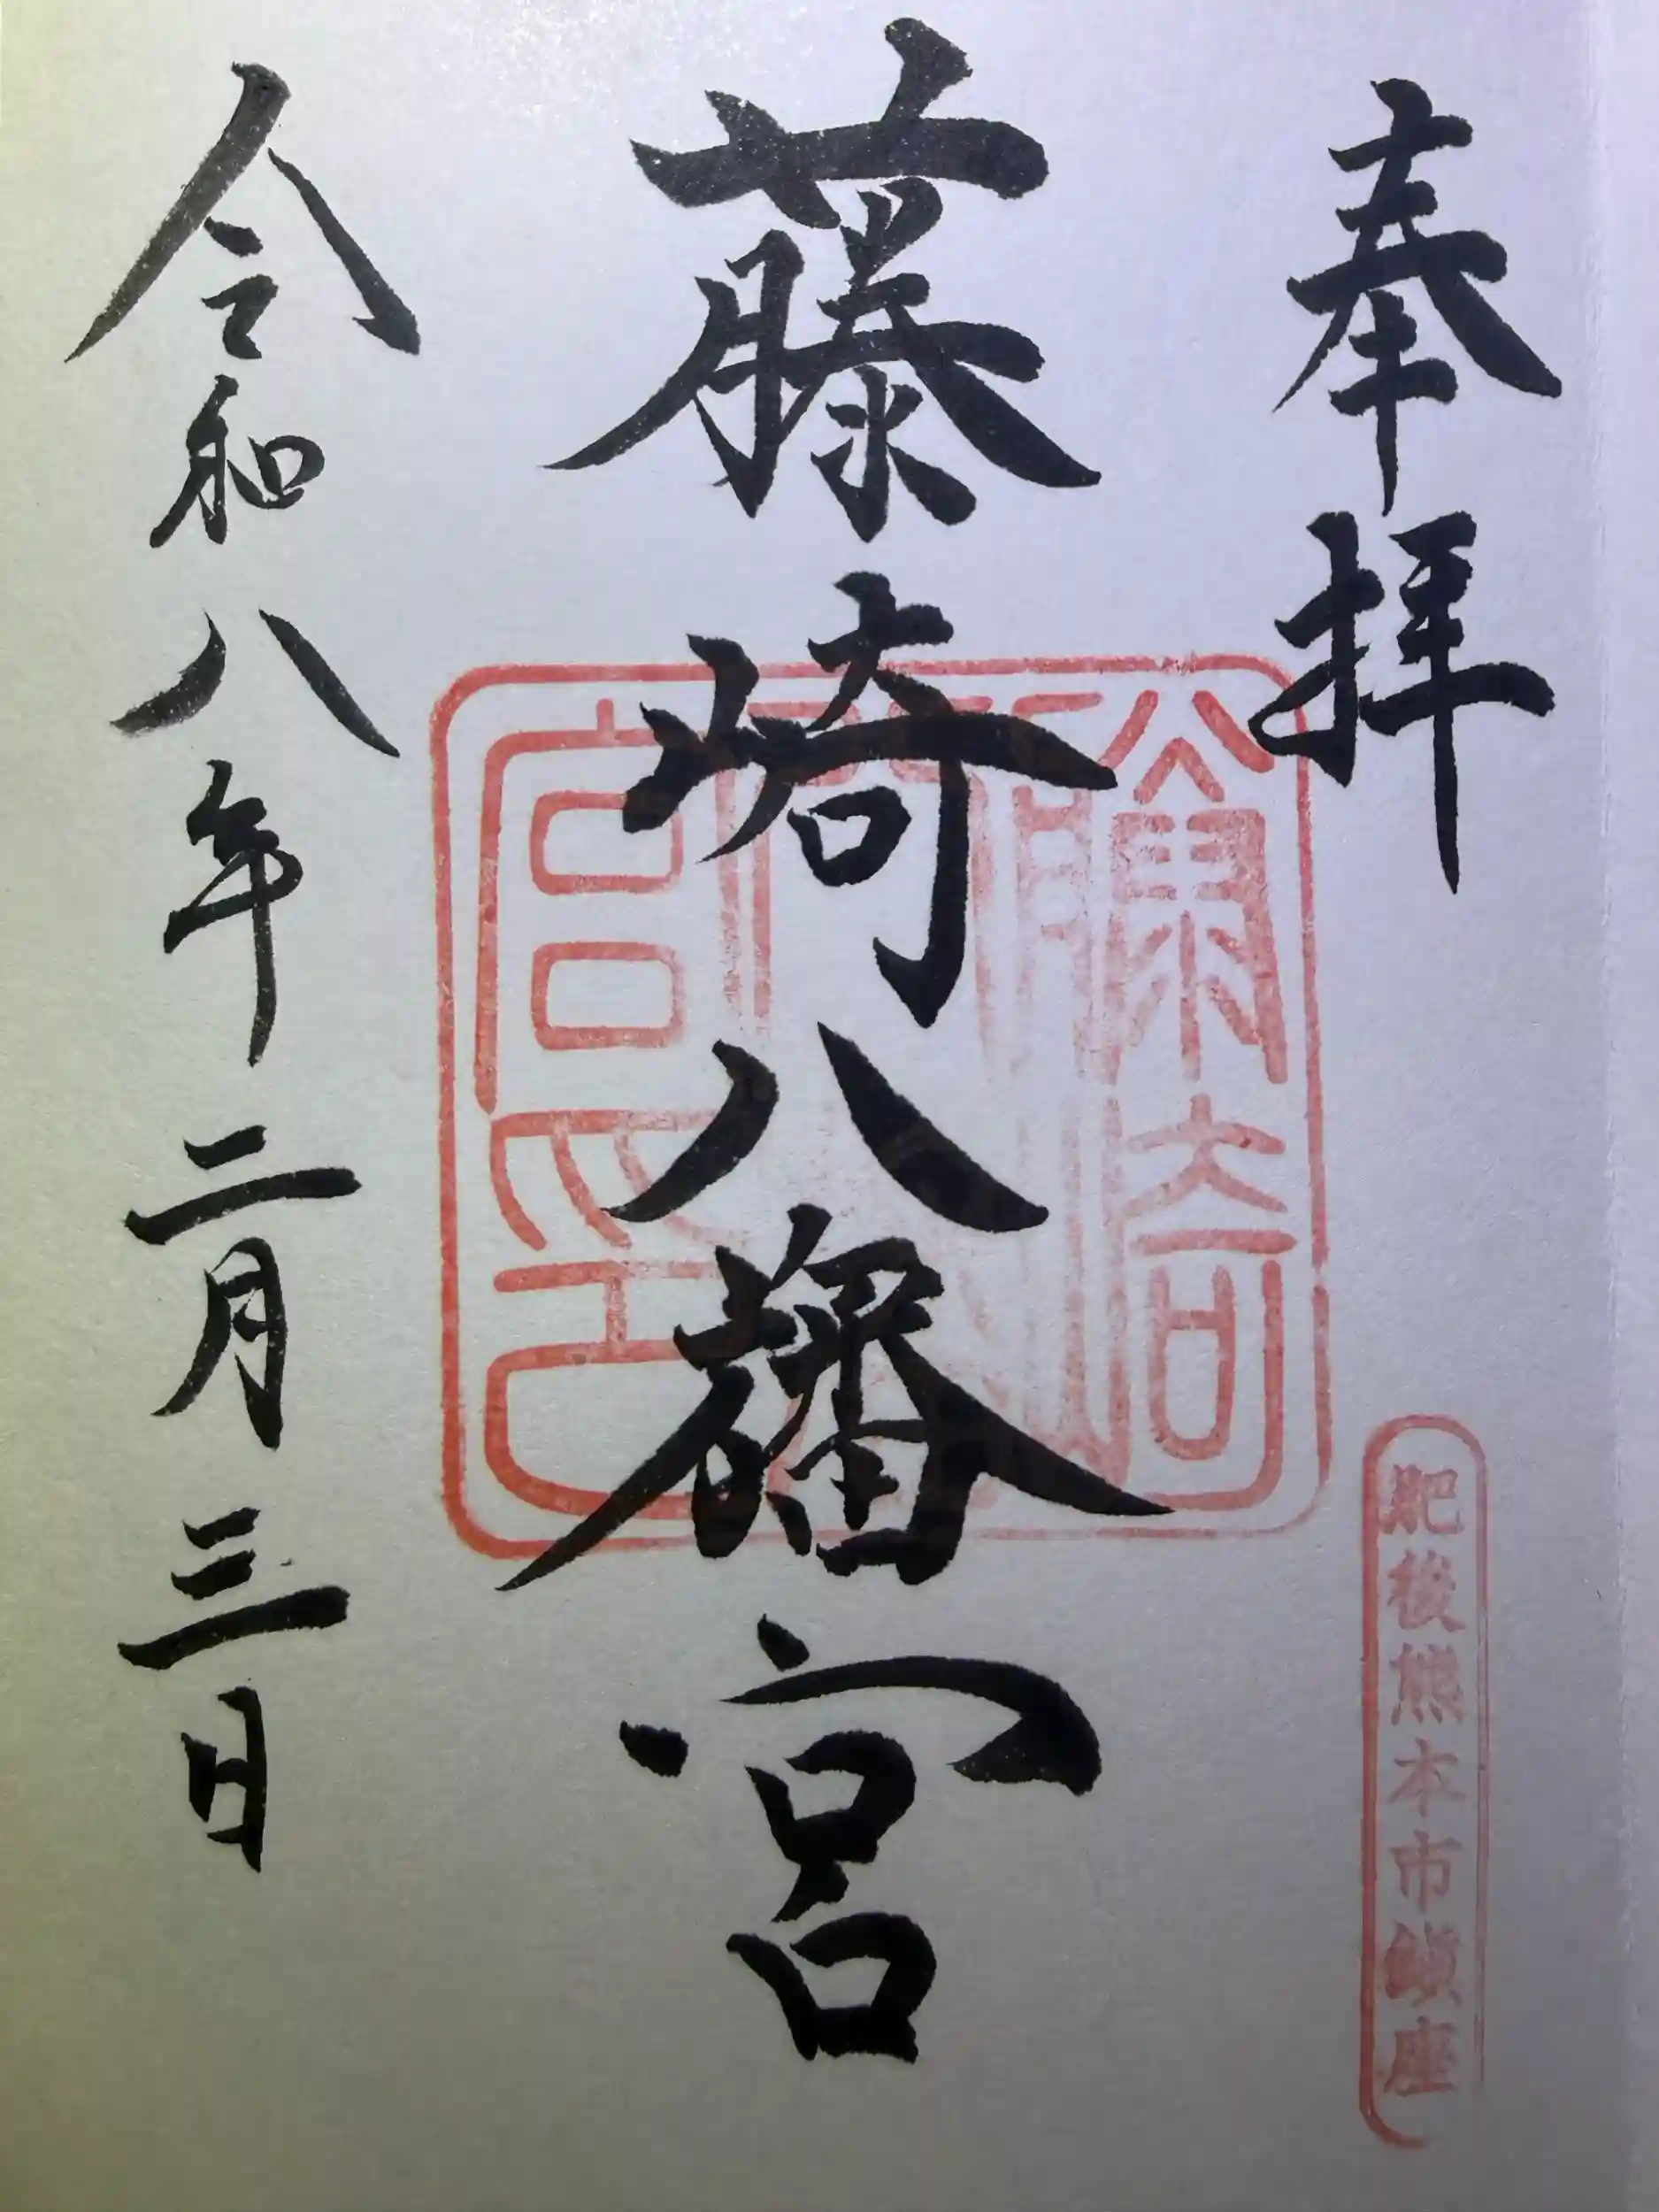 奉拝
肥後熊本市鎮座
藤崎八旛宮
令和八年二月三日